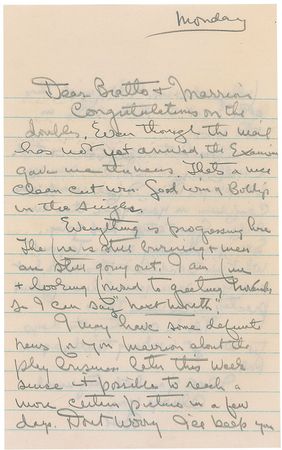 Monday
Dear Bratto & Marrion
Congratulations on the
doubles. Even though the mail
has not yet arrived, the Examiner
gave me the news. Thats a nice
clean cut win. Good win of Bobbys
in the singles.
Everything is progressing here
The fire is still burning & men
are still going out. I am fine
& looking forward to greeting
so I can say "next month".
I may have some definite
news for you Marrion about the
play business later this week
sense it possible to reach a
more certain picture in a few
days. Dont worry I'll keep you